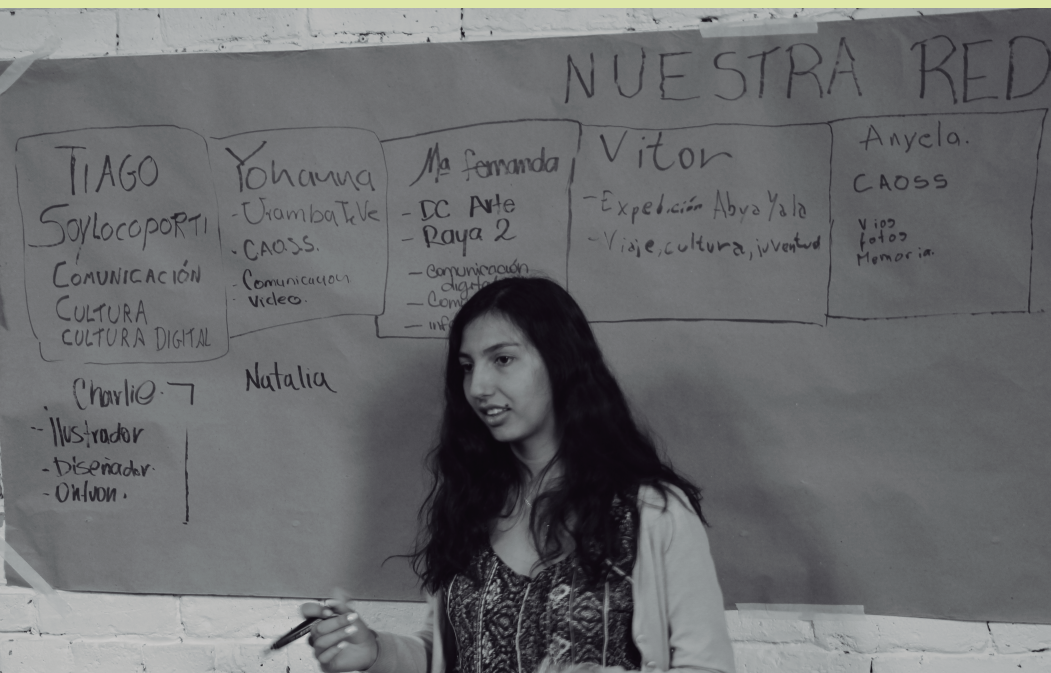 NUESTRA RED
TIAGO
SOYLOCOPORTI
COMUNICACIÓN
CULTURA
CULTURA DIGITAL
Yohanna
- UrambaTeVe
- CAOSS.
- Comunicación
- Video.
Mª fernanda
- DC Arte
- Raya 2
- Comunicación
digital
Vitor
- Expedición Abya Yala
- Viaje, cultura, juventud
Anyela.
CAOSS
fotos
Memoria.
Charlie.
- Ilustrador
- Diseñador.
Natalia